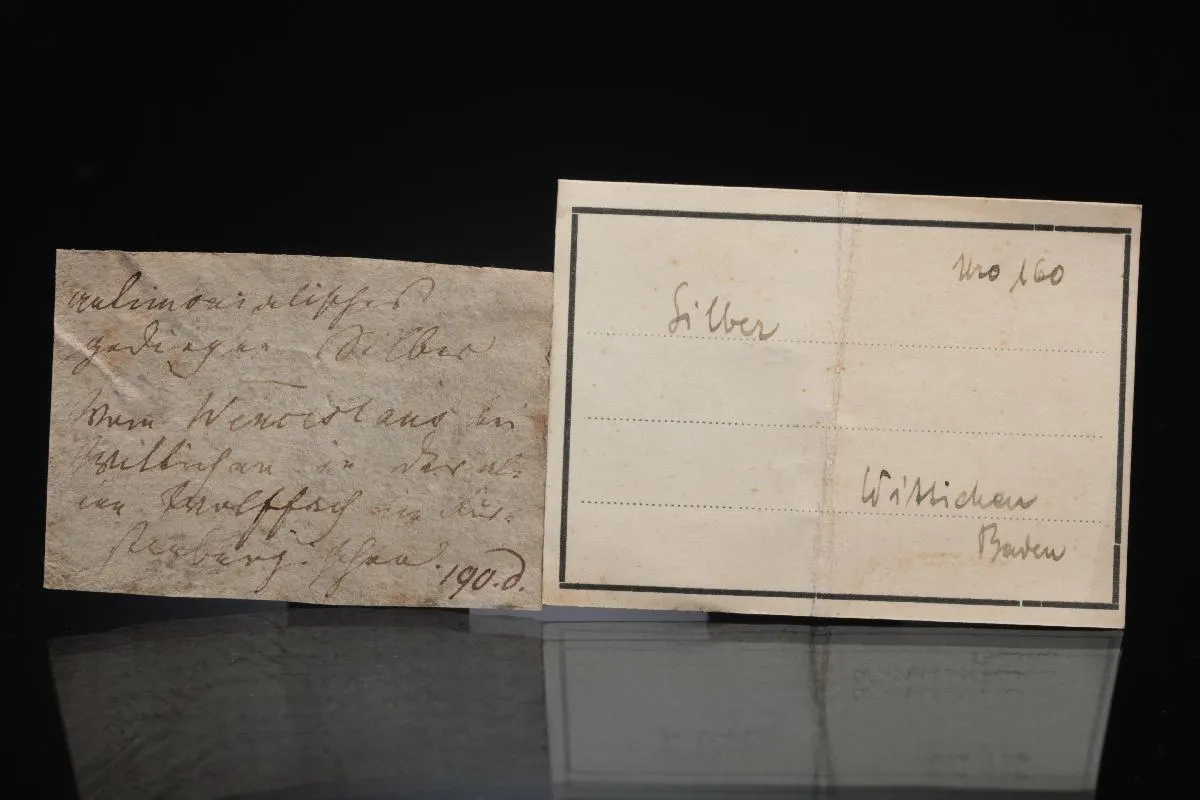 antimonialisches
gediegen Silber
Vom Wenceslaus bei
Wittichen in der al-
ten Wolffach im Für-
stenberg.
190.d.
Nro 160
Silber
Wittichen
Baden